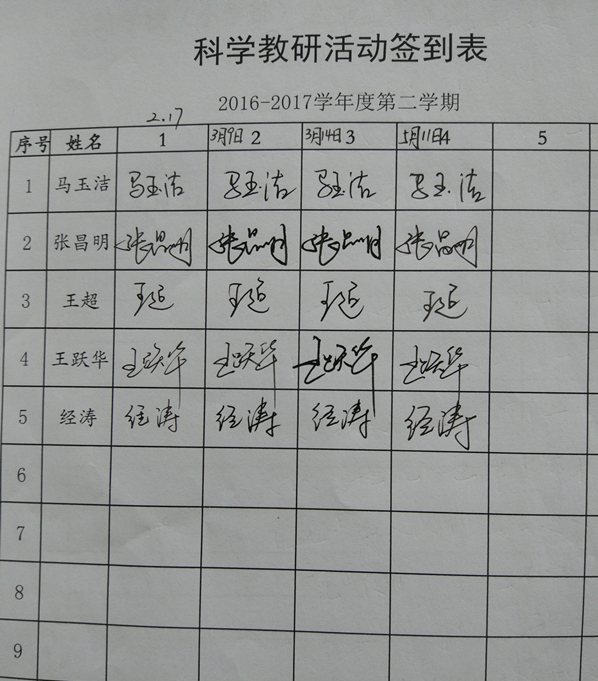 科学教研活动签到表
2016-2017学年度第二学期
2.17
序号 姓名 1 3月9日 2 3月14日 3 5月11日 4 5
1 马玉洁 马玉洁 马玉洁 马玉洁 马玉洁
2 张昌明 张昌明 张昌明 张昌明 张昌明
3 王超 王超 王超 王超 王超
4 王跃华 王跃华 王跃华 王跃华 王跃华
5 经涛 经涛 经涛 经涛 经涛
6
7
8
9